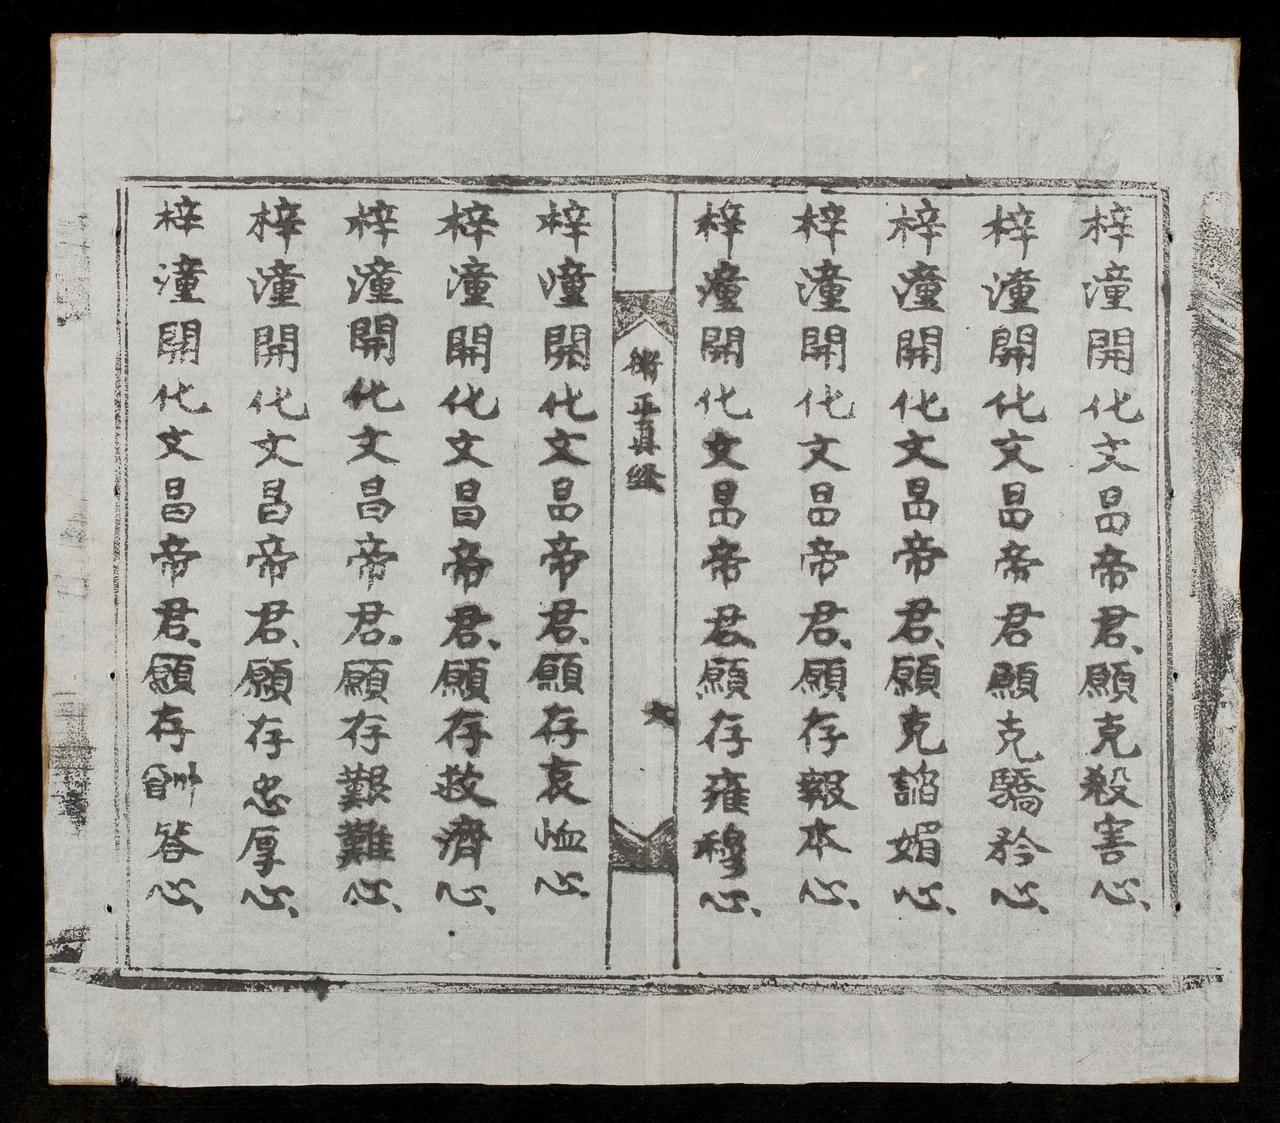 梓潼開化文昌帝君、願克殺害心、
梓潼開化文昌帝君願克驕矜心、
梓潼開化文昌帝君、願克諂媚心、
梓潼開化文昌帝君、願存報本心、
梓潼開化文昌帝君願存雍穆心、
衛正真經
梓潼開化文昌帝君、願存哀恤心、
梓潼開化文昌帝君、願存救濟心、
梓潼開化文昌帝君。願存艱難心、
梓潼開化文昌帝君、願存忠厚心、
梓潼開化文昌帝君、願存酬答心、